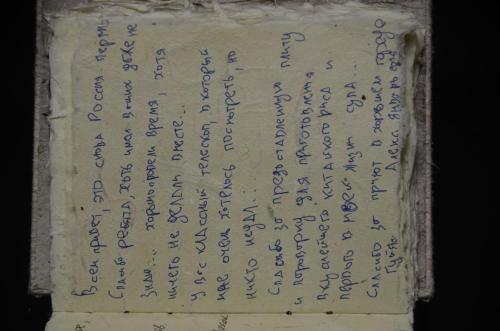 Всем привет, это снова Россия Пермь
Спасибо ребята, хоть имён ваших даже не
знаю... хорошо провели время, хотя
ничего не делали вместе...
у вас классный телескоп, в который
мне очень хотелось посмотреть, но
никто не дал...
Спасибо за предоставленную плиту
и поварёшку для приготовления
вкуснейшего китайского риса и
первого в моей жизни супа...
Спасибо за приют в хорошем
Алекс Январь